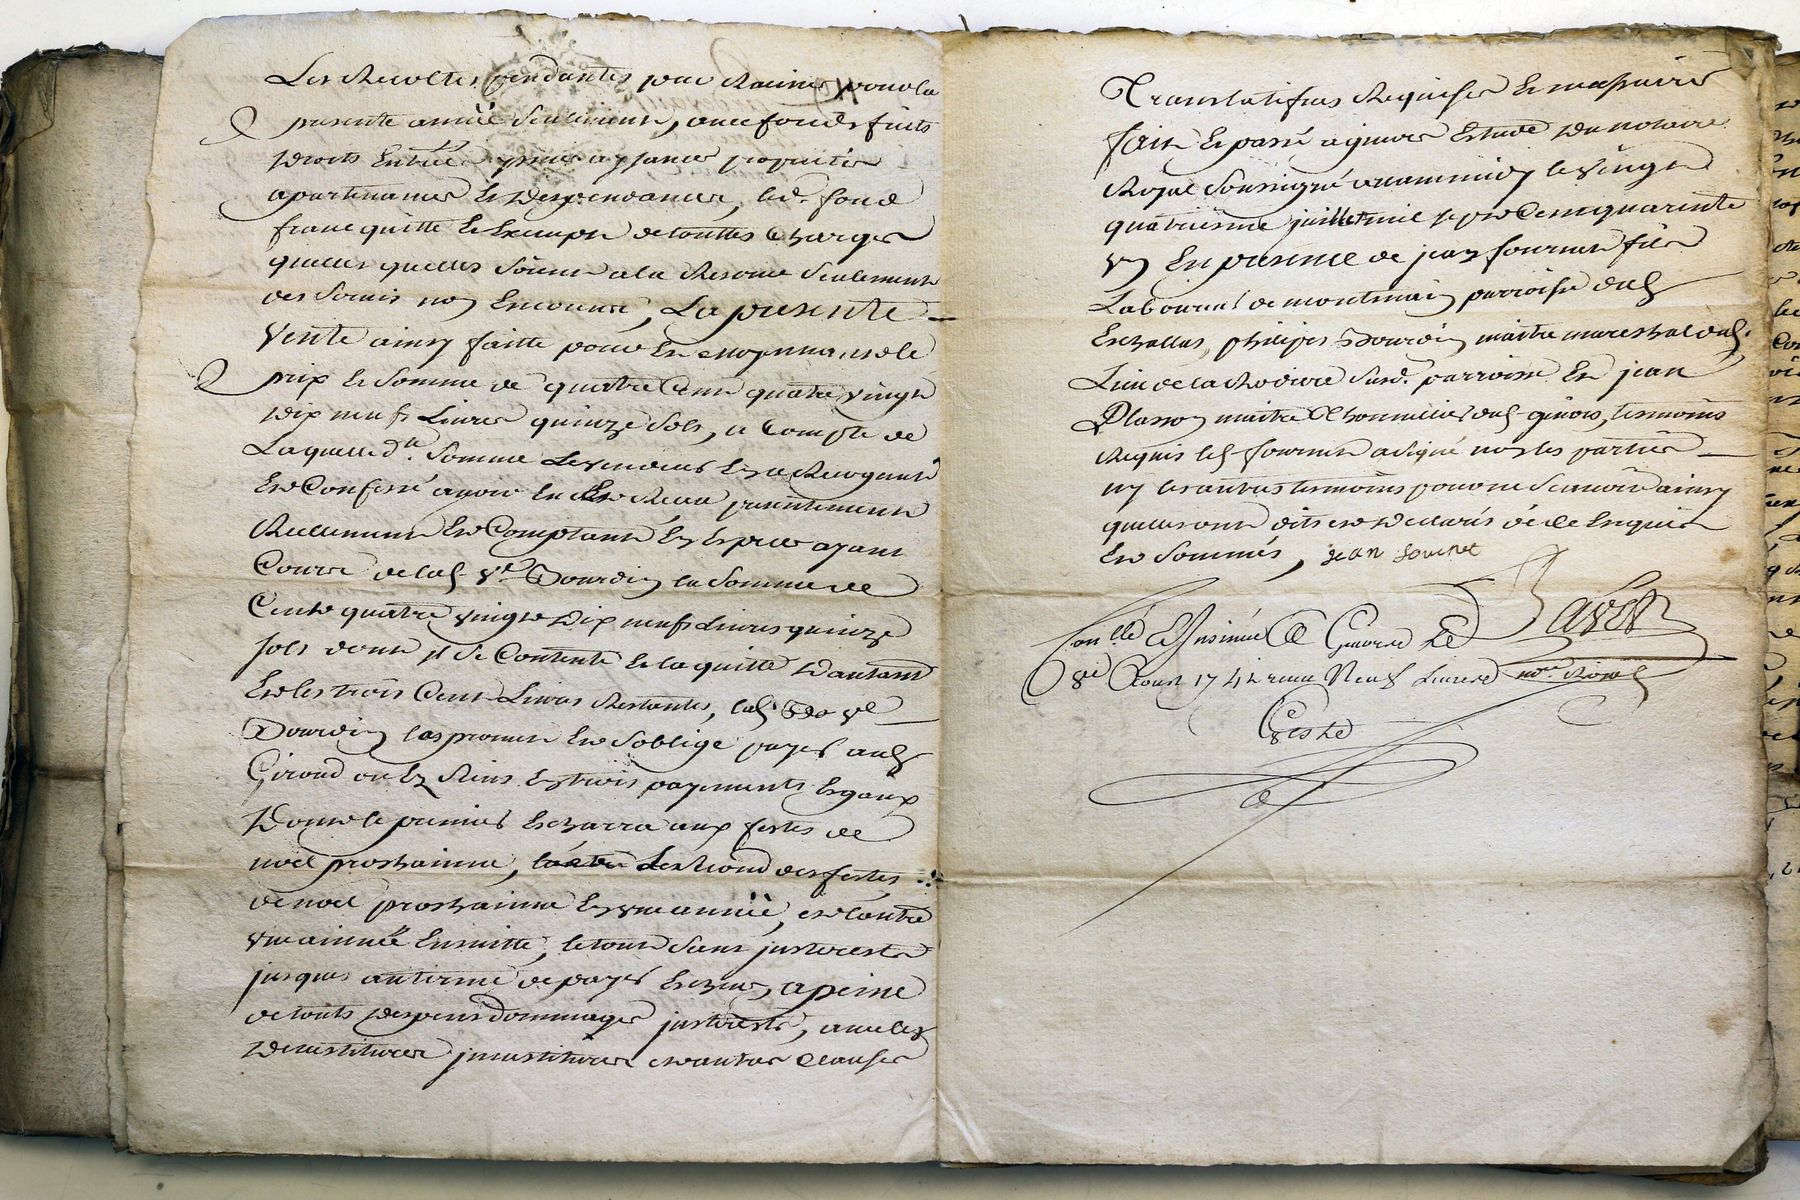 Les Recoltes pendantes par Racines pour la
presente année seulement, avec fonds fruits
droits Entrées yssues aysances proprietés
apartenances et Dependances, led. fond
franc quitte et Exempt de touttes Charges
quelles quelles soient a la Reserve seulement
des servis non Encourus, La presente
Vente ainsy faitte pour et moyennant le
prix et somme de quatre Cent quatre vingt
dix neufs Livres quinze sols, a Compte de
Laquelle de. somme Le vendeur Ez a Recognu
Et Confessé avoir Eu Et Receu presentement
Reellement Et Comptant En Especes ayant
Cours de lad. ve. Dourdin la somme de
Cent quatre vingt Dix neufs Livres quinze
sols dont il se Contente Et la quitte D'autant
Et les trois Cent Livres Restantes, lad. ve
Dourdin les promet Et s'oblige payer aud.
Giroud ou Ez siens En trois payements Egaux
Dont le premier Escherra aux festes de
noel prochainne, Le second des festes
de noel prochainne En une année, et l'autre
une année Ensuitte, le tout sans jnterests
jusques au terme de payer Escheu, a peine
de touts depens dommages jnterests, avec les
De vestitures jnvestitures et autres Clauses
Translatifves Requises Et necessaires
fait Et passé a givors Estude du notaire
Royal soussigné avant midy le vingt
quatrieme juillet mil sept Cent quarente
un En presence de jean fournet fils
Laboureur de montmain parroisse dud.
Eschallas, philipes Dourdin maitre mareschal dud.
Lieu de la Rodiere susd. parroisse Et jean
Plasson maitre Chommelier dud. givors, temoins
Requis led. fournet a signé non les parties
ny les autres temoins pour ne sçavoir ainsy
quils ont dits et declarés de ce Enquis
Et sommés, jean fournet
Conllé Et Jnsinué a Givors le
Aoust 1741 receu Neuf Livres
Bavet
nore. Royal